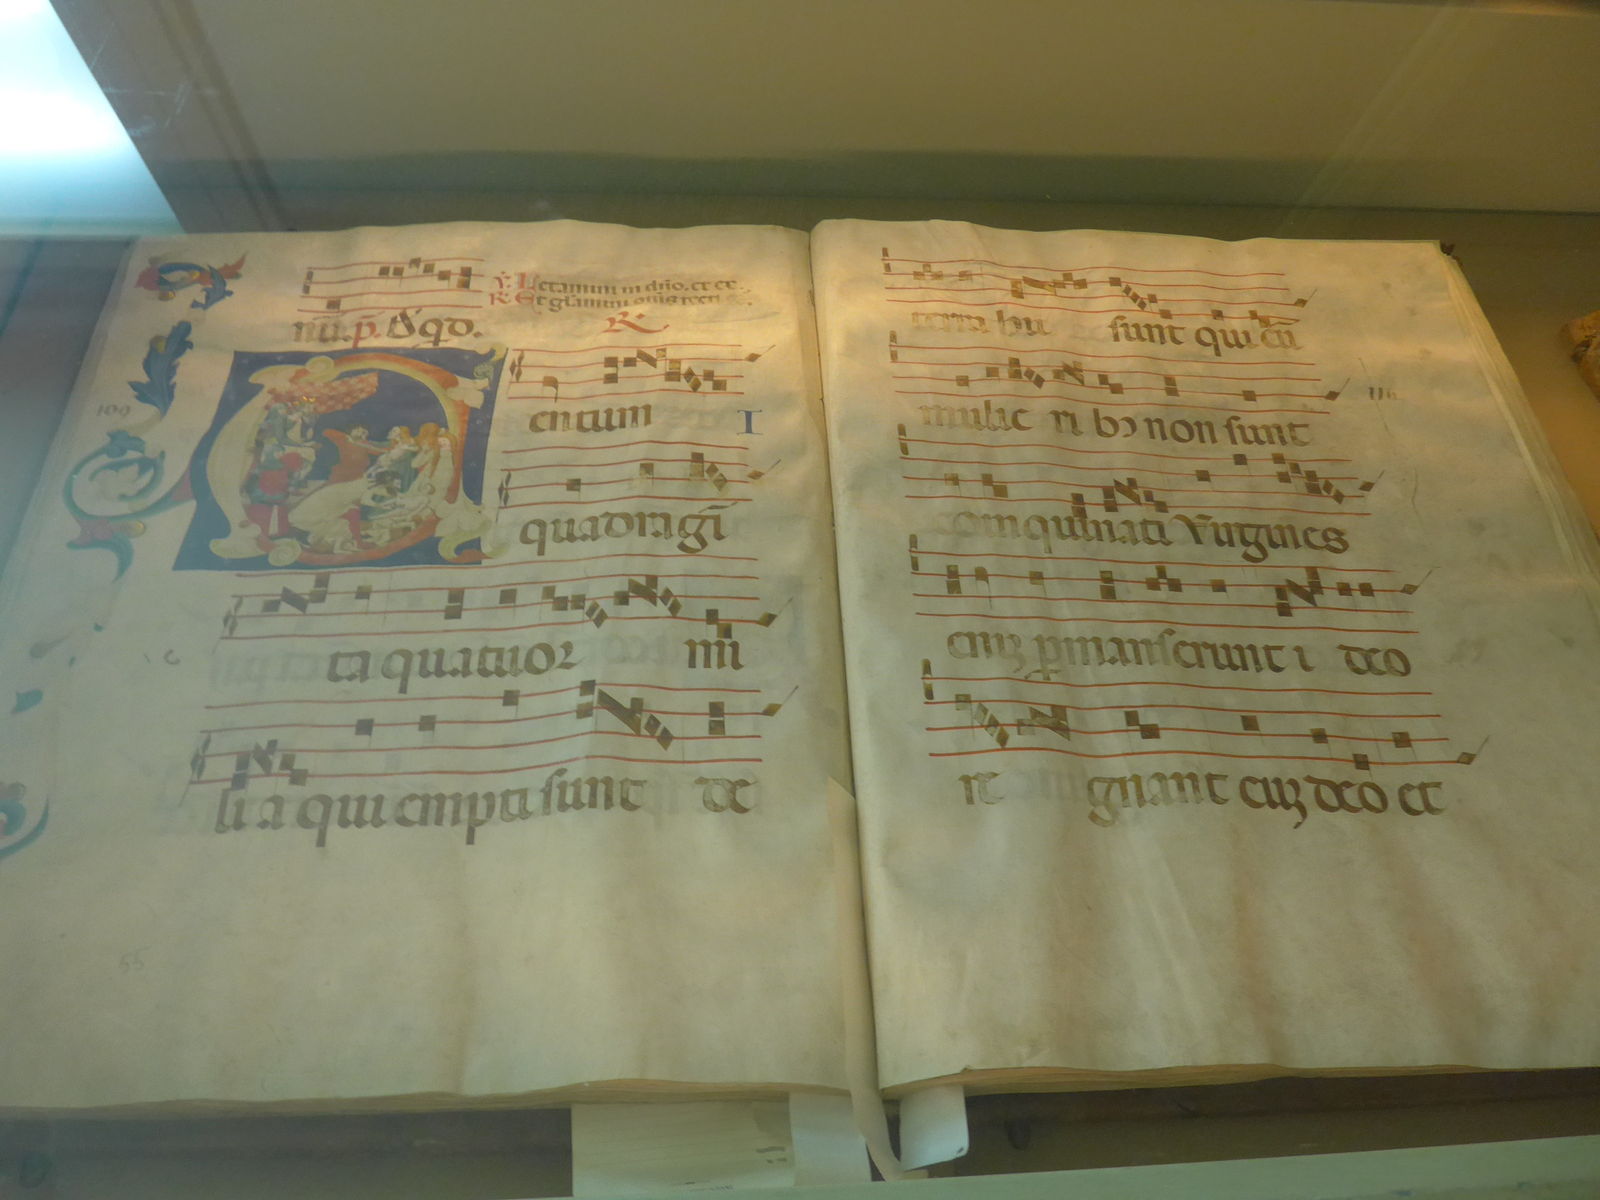 nũ. p̃. A qd.
℣. Letamini in dño. et ex
℟. Et gl'amini oms recti
℟.
109
entum I
quadragĩ
ta quatuor mi
li a qui empti sunt de
55
terra hii sunt qui cũ
116
mulie ri bꝫ non sunt
coinquinati Virgines
enĩꝫ ꝑmanserunt i deo
re gnant cuꝫ deo et